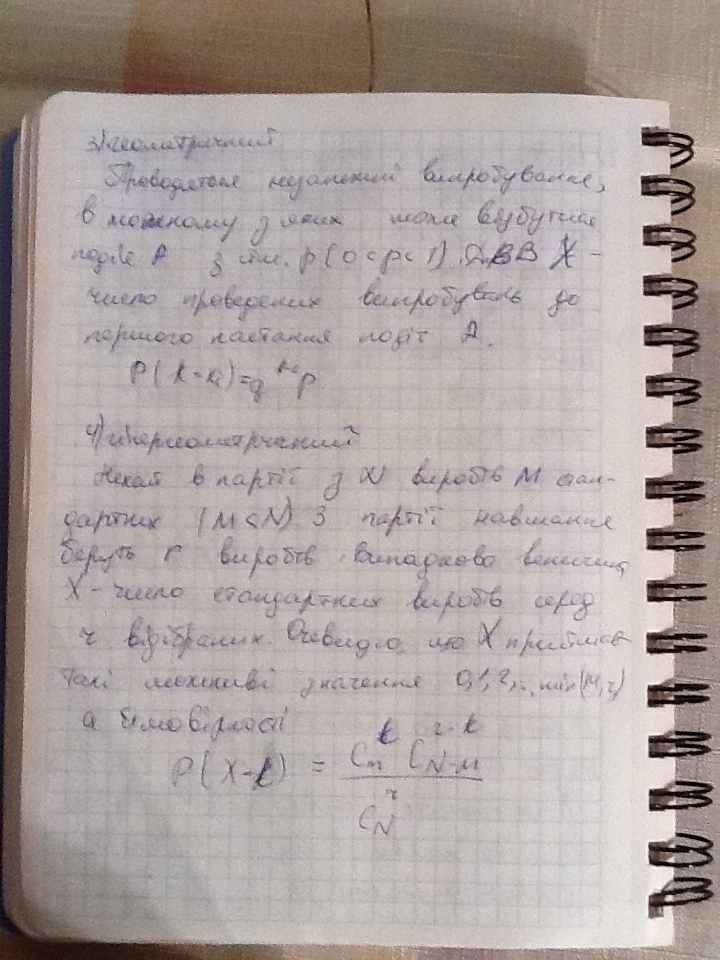 3) геометричний
Проводяться незалежні випробування,
в кожному з яких може відбутися
подія A з ймо. p (0<p<1). ДВВ X -
число проведених випробувань до
першого настання події A.
P(X=k)=q^{k-1}p
4) гіпергеометричний
Нехай в партії з N виробів M стан-
дартних (M<N) З партії навмання
беруть r виробів. Випадкова величина
X - число стандартних виробів серед
r відібраних. Очевидно, що X приймає
такі можливі значення 0,1,2,..., min(M,r)
а ймовірності
P(X=k) = \frac{C_M^k C_{N-M}^{r-k}}{C_N^r}